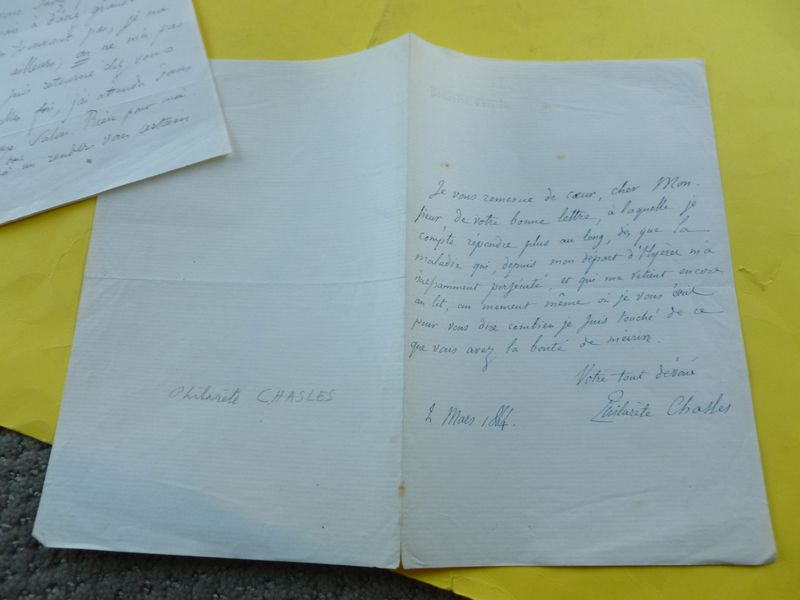 à d'avis
travaillant pas, je me
ailleurs; on ne m'a pas
puis retourné chez vous
fois, j'ai attendu dans
Salon. Rien pour moi
un rendez vous certain
Je vous remercie de cœur, cher Mon-
sieur de votre bonne lettre, à laquelle je
compte répondre plus au long, dès que la
maladie qui, depuis mon départ d'Hyères m'a
incessamment persécuté, et qui me retient encore
au lit, au moment même où je vous écris
pour vous dire combien je suis touché de ce
que vous avez la bonté de m'écrire.
Votre tout dévoué
Philarète Chasles
2 Mars
Philarète CHASLES